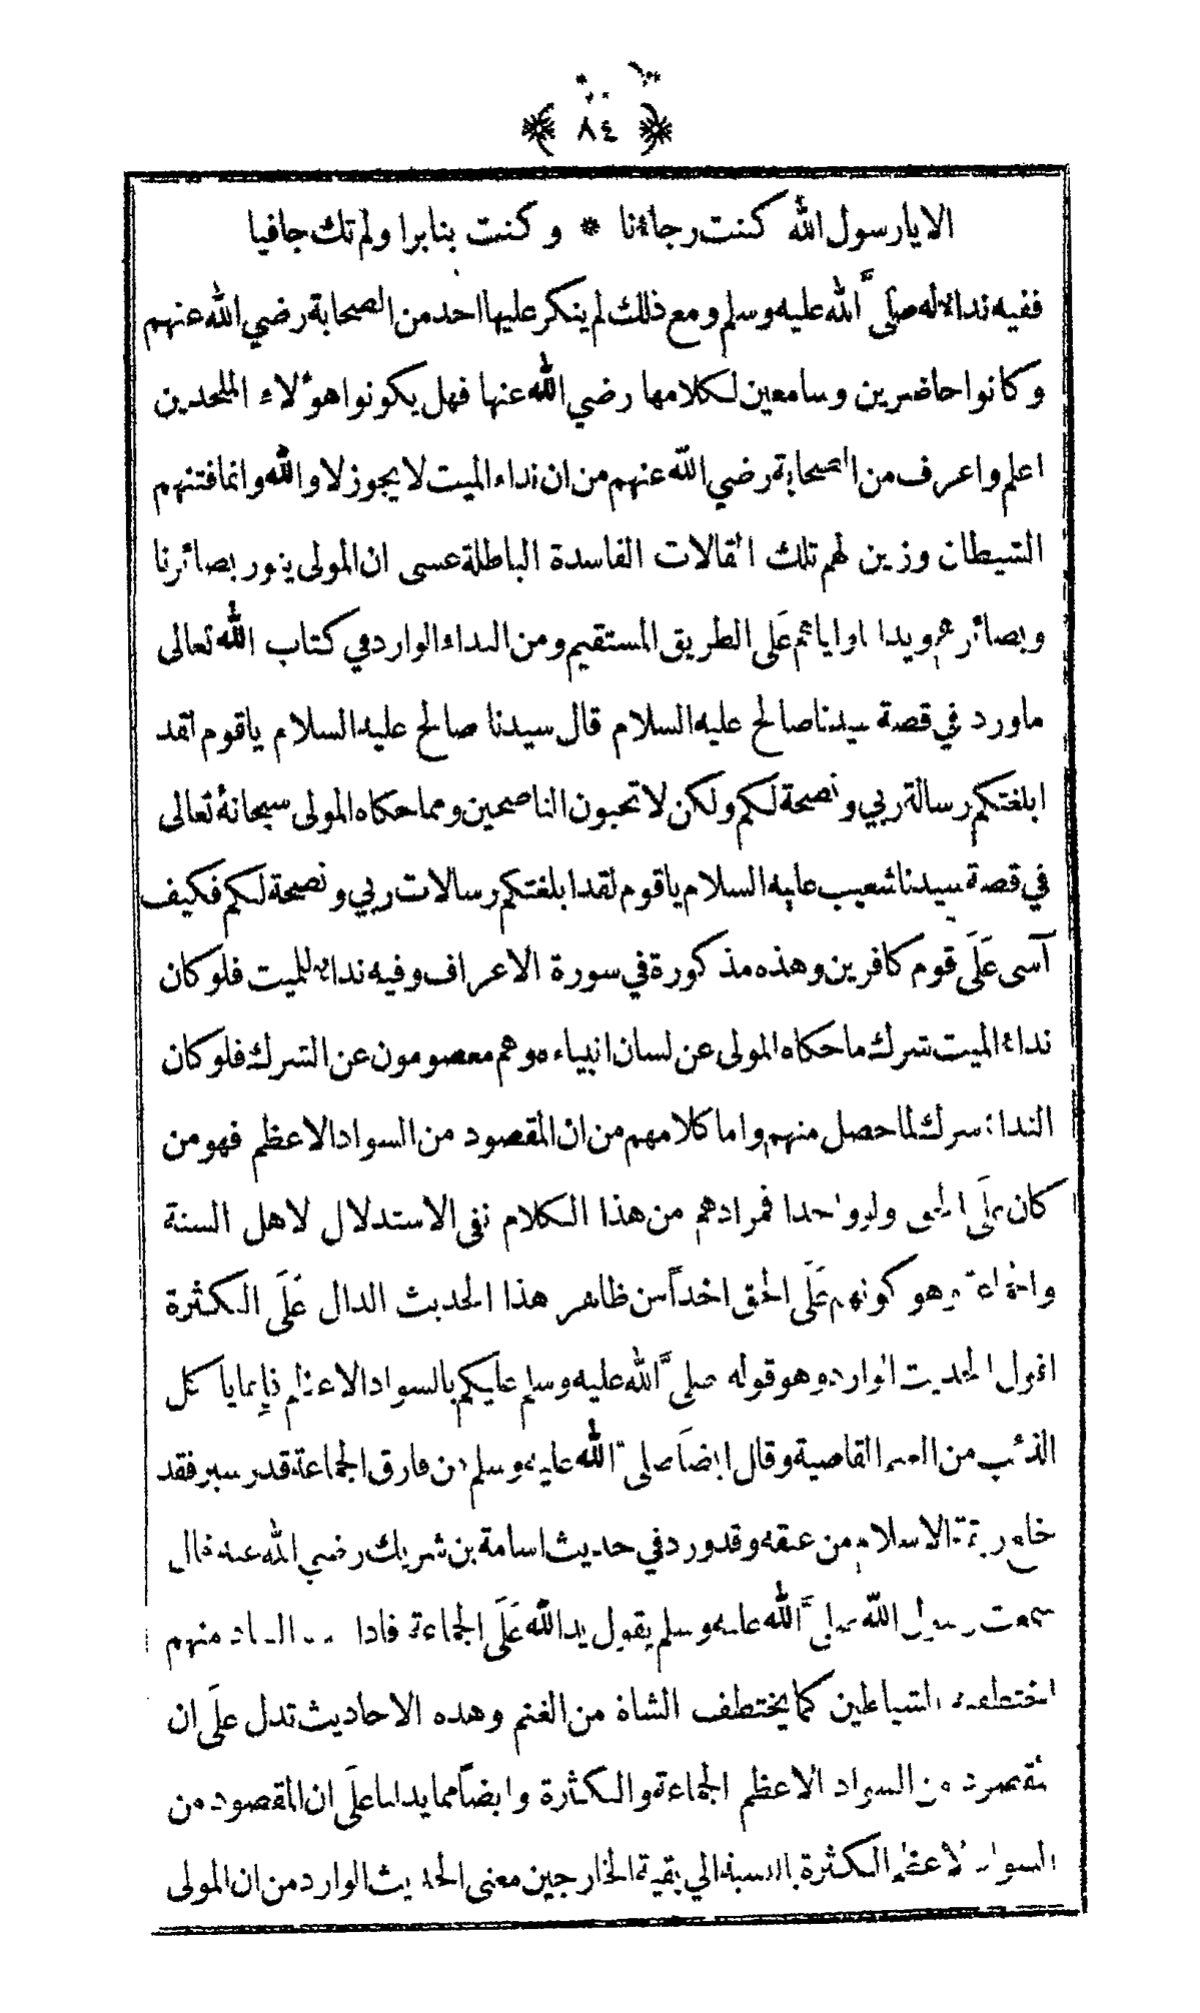 ﴿ ٨٤ ﴾
الا يا رسول الله كنت رجاءنا * وكنت بنا برا ولم تك جافيا
ففيه نداء له صلى الله عليه وسلم ومع ذلك لم ينكر عليها احد من الصحابة رضي الله عنهم
وكانوا حاضرين وسامعين لكلامها رضي الله عنها فهل يكونوا هؤلاء الملحدين
اعلم واعرف من الصحابة رضي الله عنهم من ان نداء الميت لا يجوز لا والله وانما فتنهم
الشيطان وزين لهم تلك القالات الفاسدة الباطلة عسى ان المولى ينور بصائرنا
وبصائرهم ويدلنا واياهم عَلَى الطريق المستقيم ومن النداء الوارد في كتاب الله تعالى
ماورد في قصة سيدنا صالح عليه السلام قال سيدنا صالح عليه السلام ياقوم لقد
ابلغتكم رسالة ربي ونصحة لكم ولكن لا تحبون الناصحين ومما حكاه المولى سبحانهُ تعالى
في قصة سيدنا شعيب عليه السلام ياقوم لقد ابلغتكم رسالات ربي ونصحة لكم فكيف
آسى عَلَى قوم كافرين وهذه مذكورة في سورة الاعراف وفيه نداء للميت فلو كان
نداء الميت شرك ما حكاه المولى عن لسان انبياءه وهم معصومون عن الشرك فلو كان
النداء شرك لما حصل منهم واما كلامهم من ان المقصود من السواد الاعظم فهو من
كان عَلَى الحق ولو واحدا فمرادهم من هذا الكلام نفي الاستدلال لاهل السنة
والجماعة وهو كونهم عَلَى الحق اخذاً من ظاهر هذا الحديث الدال عَلَى الكثرة
اقول الحديث الوارد وهو قوله صلى الله عليه وسلم عليكم بالسواد الاعظم فإِنما يا كل
الذئب من الغنم القاصية وقال ايضاً صلى الله عليه وسلم من فارق الجماعة قدر شبر فقد
خلع ربقة الاسلام من عنقه وقد ورد في حديث اسامة بن شريك رضي الله عنه قال
سمعت رسول الله صلى الله عليه وسلم يقول يد الله عَلَى الجماعة فاذا منهم
اختطفته الشياطين كما يختطف الشاة من الغنم وهذه الاحاديث تدل علَى ان
المقصود من السواد الاعظم الجماعة والكثرة وايضاً مما يدلنا علَى ان المقصود من
السواد الاعظم الكثرة بالنسبة الي بقية الخارجين معنى الحديث الوارد من ان المولى